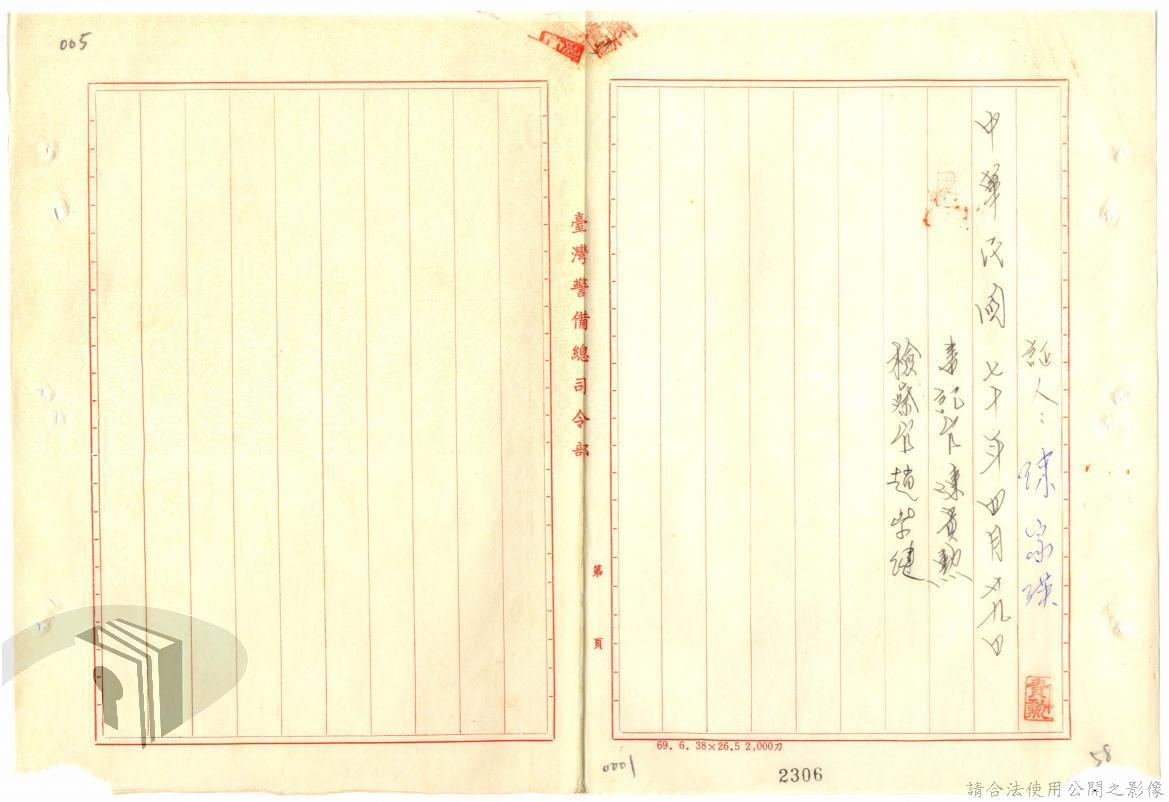 005
證人：陳家瑛
中華民國七十年四月十九日
書記官陳貴勳
檢察官趙
貴勳
臺灣警備總司令部
第 頁
69. 6. 38×26.5 2,000刀
0001
2306
58
請合法使用公開之影像